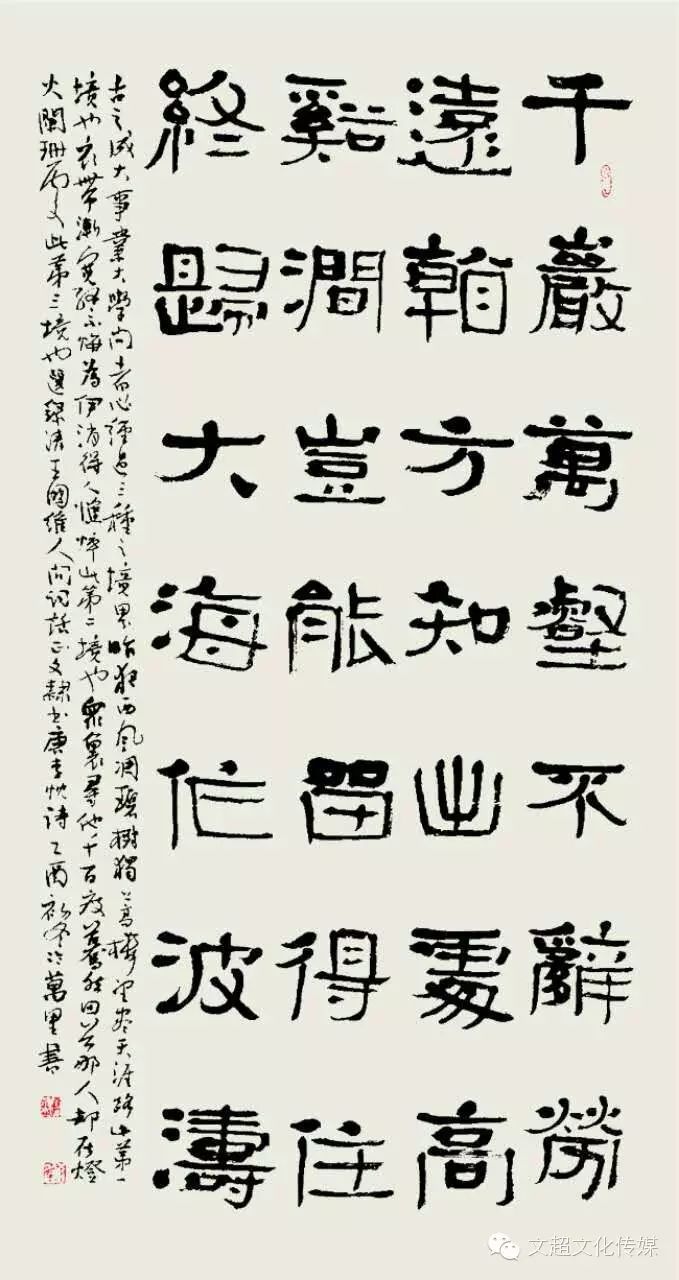 千巖萬壑不辭勞
遠看方知出處高
谿澗豈能留得住
終歸大海作波濤
古之成大事業大學問者必經過三種之境界昨夜西風凋碧樹獨上高樓望盡天涯路此第一
境也衣帶漸寬終不悔為伊消得人憔悴此第二境也眾裏尋他千百度驀然回首那人卻在燈
火闌珊處此第三境也選錄清王國維人間詞話正文隸書唐李忱詩乙酉初冬於萬里書
文超文化传媒